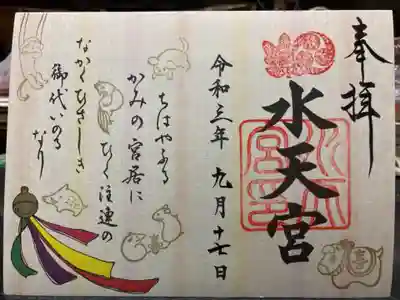 奉拝
水天宮
令和三年 九月 十七日
ちはやふる
かみの宮居に
ひく注連の
なかくひさしき
御代いのる
なり